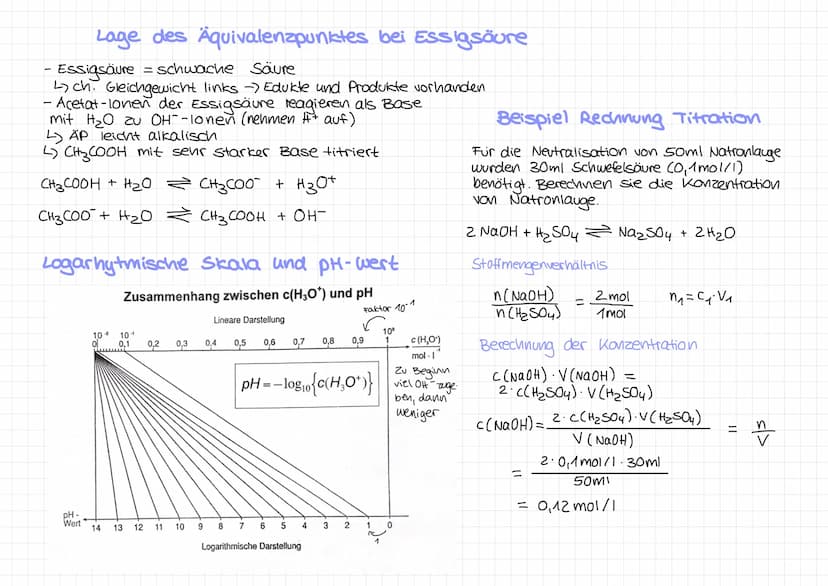 Lage des Äquivalenzpunktes bei Essigsäure
- Essigsäure = schwache Säure
↳ ch. Gleichgewicht links → Edukte und Produkte vorhanden
- Acetat-Ionen der Essigsäure reagieren als Base
mit H₂O zu OH⁻-Ionen (nehmen H⁺ auf)
↳ ÄP leicht alkalisch
↳ CH₃COOH mit sehr starker Base titriert
CH₃COOH + H₂O ⇌ CH₃COO⁻ + H₃O⁺
CH₃COO⁻ + H₂O ⇌ CH₃COOH + OH⁻
Logarhytmische Skala und pH-Wert
Zusammenhang zwischen c(H₃O⁺) und pH
Faktor 10⁻¹
Lineare Darstellung
10⁻¹ 10⁰
0 0,1 0,2 0,3 0,4 0,5 0,6 0,7 0,8 0,9 1 c(H₃O⁺)
mol · l⁻¹
pH = −log₁₀{c(H₃O⁺)}
Zu Beginn
viel OH⁻ zuge-
ben, dann
weniger
pH -
Wert 14 13 12 11 10 9 8 7 6 5 4 3 2 1 0
1
Logarithmische Darstellung
Beispiel Rechnung Titration
Für die Neutralisation von 50ml Natronlauge
wurden 30ml Schwefelsäure (0,1mol/l)
benötigt. Berechnen sie die Konzentration
von Natronlauge.
2 NaOH + H₂SO₄ ⇌ Na₂SO₄ + 2 H₂O
Stoffmengenverhältnis
n(NaOH) / n(H₂SO₄) = 2mol / 1mol n₁ = c₁·V₁
Berechnung der Konzentration
c(NaOH) · V(NaOH) =
2 · c(H₂SO₄) · V(H₂SO₄)
c(NaOH) = 2 · c(H₂SO₄) · V(H₂SO₄) / V(NaOH) = n / V
= 2 · 0,1mol/l · 30ml / 50ml
= 0,12 mol/l